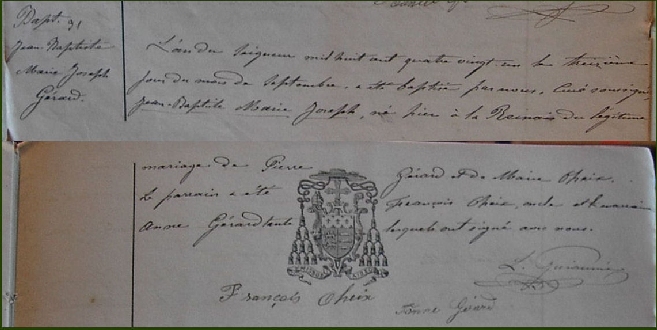 Bapt. 31
Jean-Baptiste
Marie Joseph
Gérard.
L'an du Seigneur mil huit cent quatre vingt un le treizième
jour du mois de Septembre, a été baptisé par nous, Curé soussigné,
Jean-Baptiste Marie Joseph, né hier à la du légitime
mariage de Pierre Gérard et de Marie Cheix.
Le parrain a été François Cheix, oncle et la marraine
Anne Gérard tante lesquels ont signé avec nous.
François Cheix
Anne Gérard